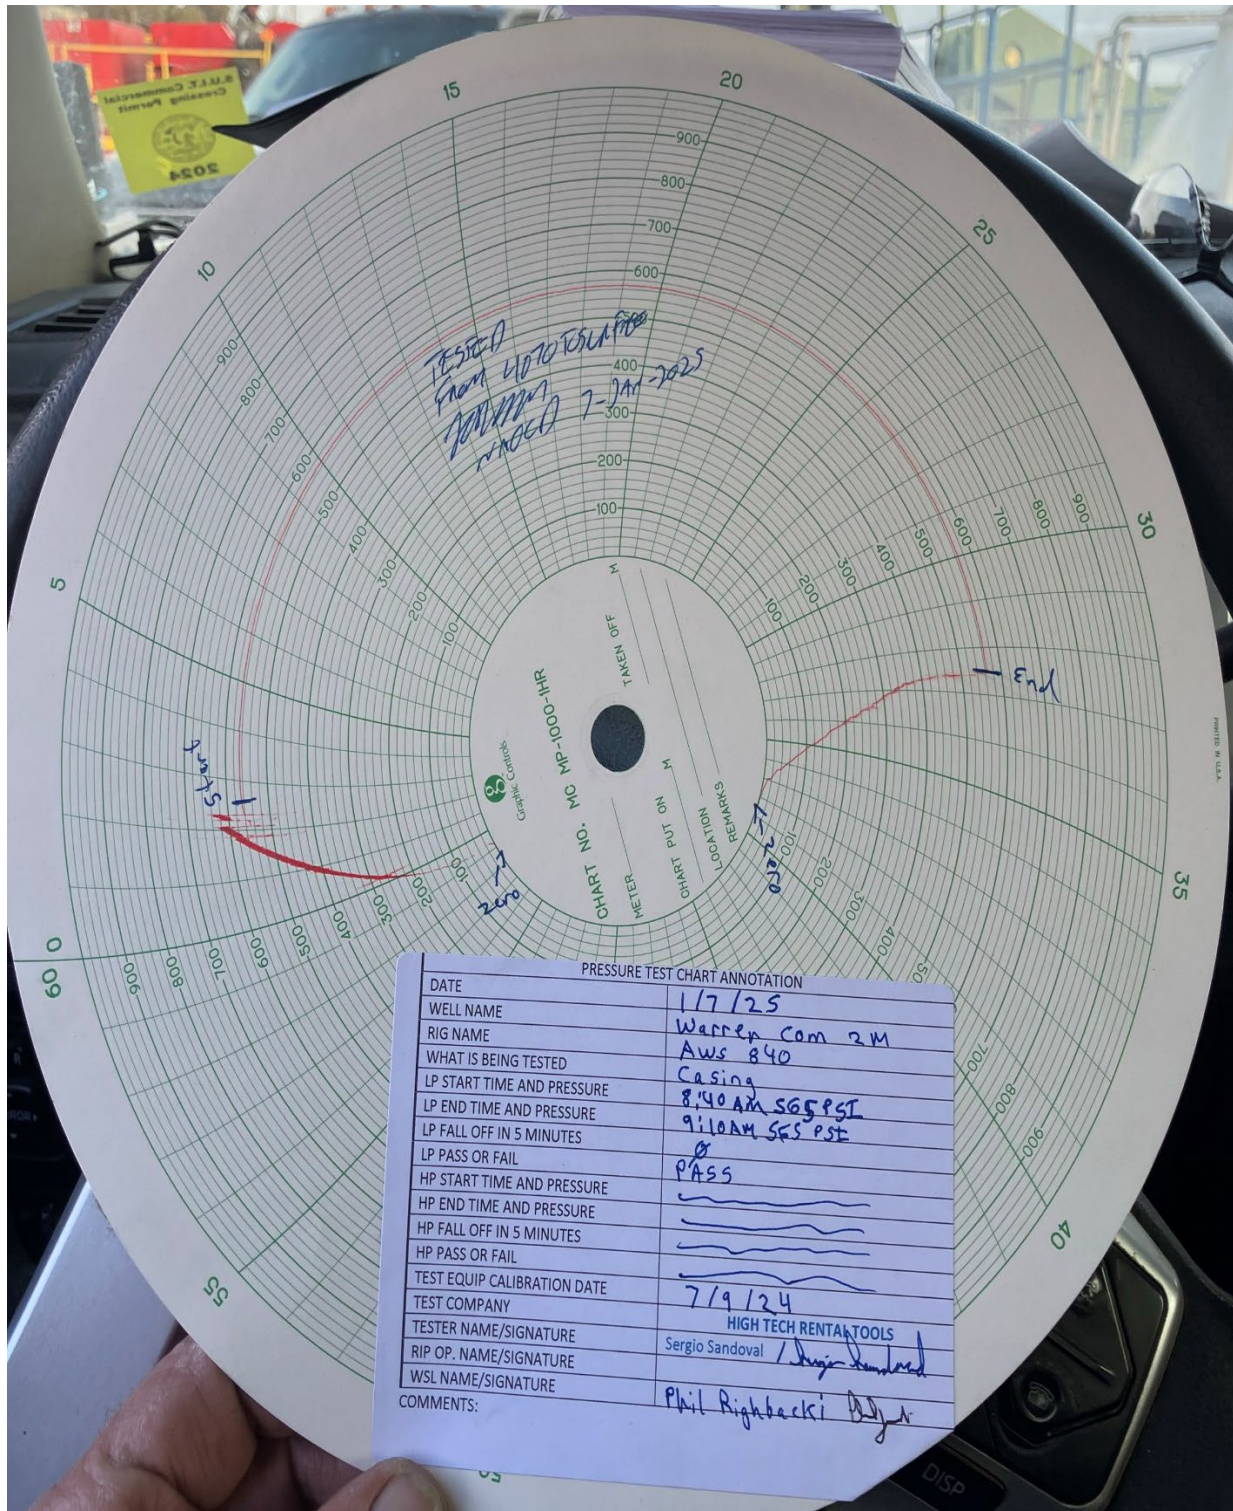 S.U.I.T. Commercial
Crossing Permit
2024
15
20
25
30
35
40
50
55
60
0
5
10
900
800
700
600
400
300
200
100
900
800
700
600
500
400
300
200
100
900
800
700
600
500
400
300
200
100
900
800
700
600
500
400
300
200
100
100
200
300
400
50
700
800
900
TESTED
From 4070 TO SURFACE
7-JAN-2025
Start
End
zero
zero
PRINTED IN U.S.A.
Graphic Controls
CHART NO. MC MP-1000-1HR
METER
TAKEN OFF M
CHART PUT ON M
LOCATION
REMARKS
PRESSURE TEST CHART ANNOTATION
DATE 1/7/25
WELL NAME Warren Com 2M
RIG NAME Aws 840
WHAT IS BEING TESTED Casing
LP START TIME AND PRESSURE 8:40 AM 565 PSI
LP END TIME AND PRESSURE 9:10AM 565 PSI
LP FALL OFF IN 5 MINUTES Ø
LP PASS OR FAIL PASS
HP START TIME AND PRESSURE
HP END TIME AND PRESSURE
HP FALL OFF IN 5 MINUTES
HP PASS OR FAIL
TEST EQUIP CALIBRATION DATE 7/9/24
TEST COMPANY HIGH TECH RENTAL TOOLS
TESTER NAME/SIGNATURE Sergio Sandoval /
RIP OP. NAME/SIGNATURE
WSL NAME/SIGNATURE Phil Righbacki
COMMENTS:
DISP